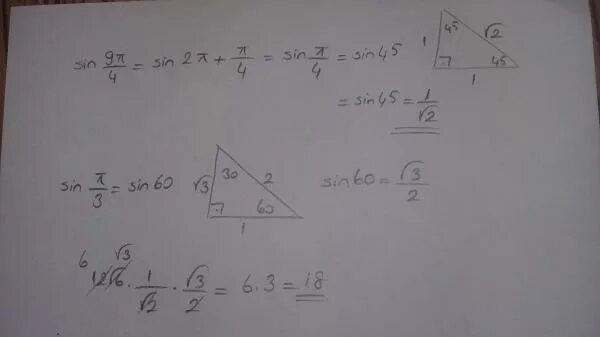 sin 9π/4 = sin 2π + π/4 = sin π/4 = sin 45
45
√2
1
45
1
= sin 45 = 1/√2
sin π/3 = sin 60
30
√3
2
60
1
sin 60 = √3/2
6 √3
12√6 · 1/√2 · √3/2 = 6·3 = 18